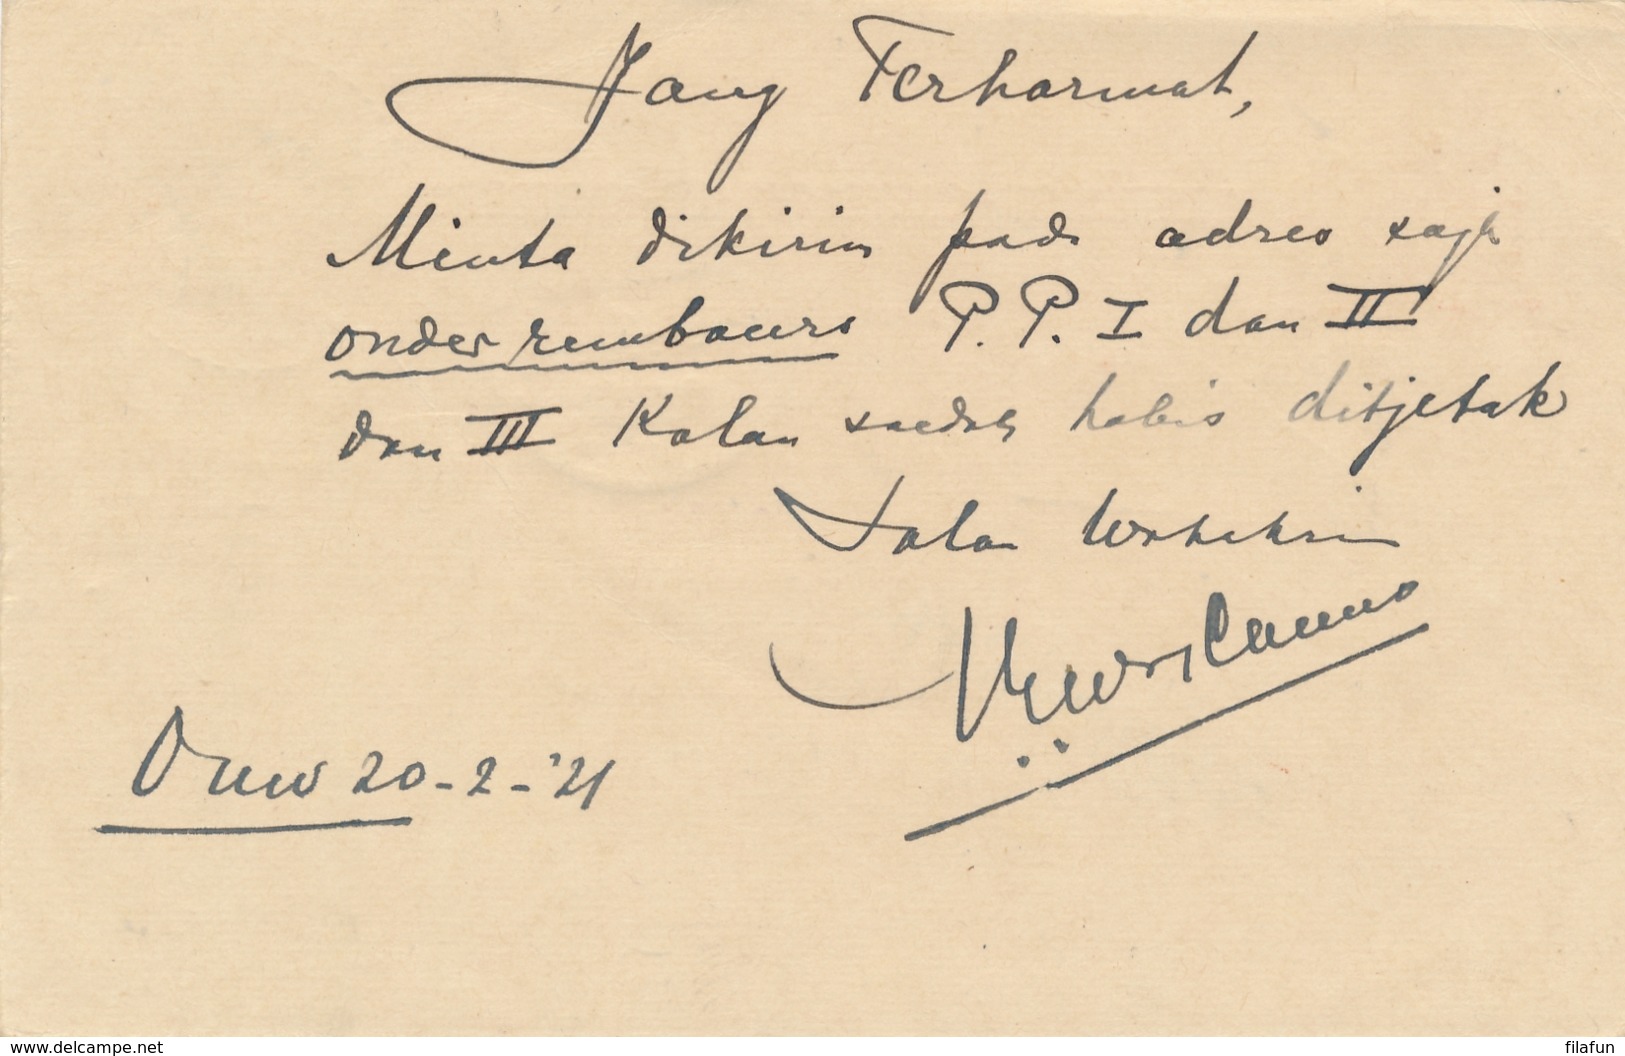 Jang Terhormat,
Minta dikirim pada adres saja
onder rembours P.P. I dan II
dan III Kalau soedah habis ditjetak
20-2-'21
www.delcampe.net
filafun